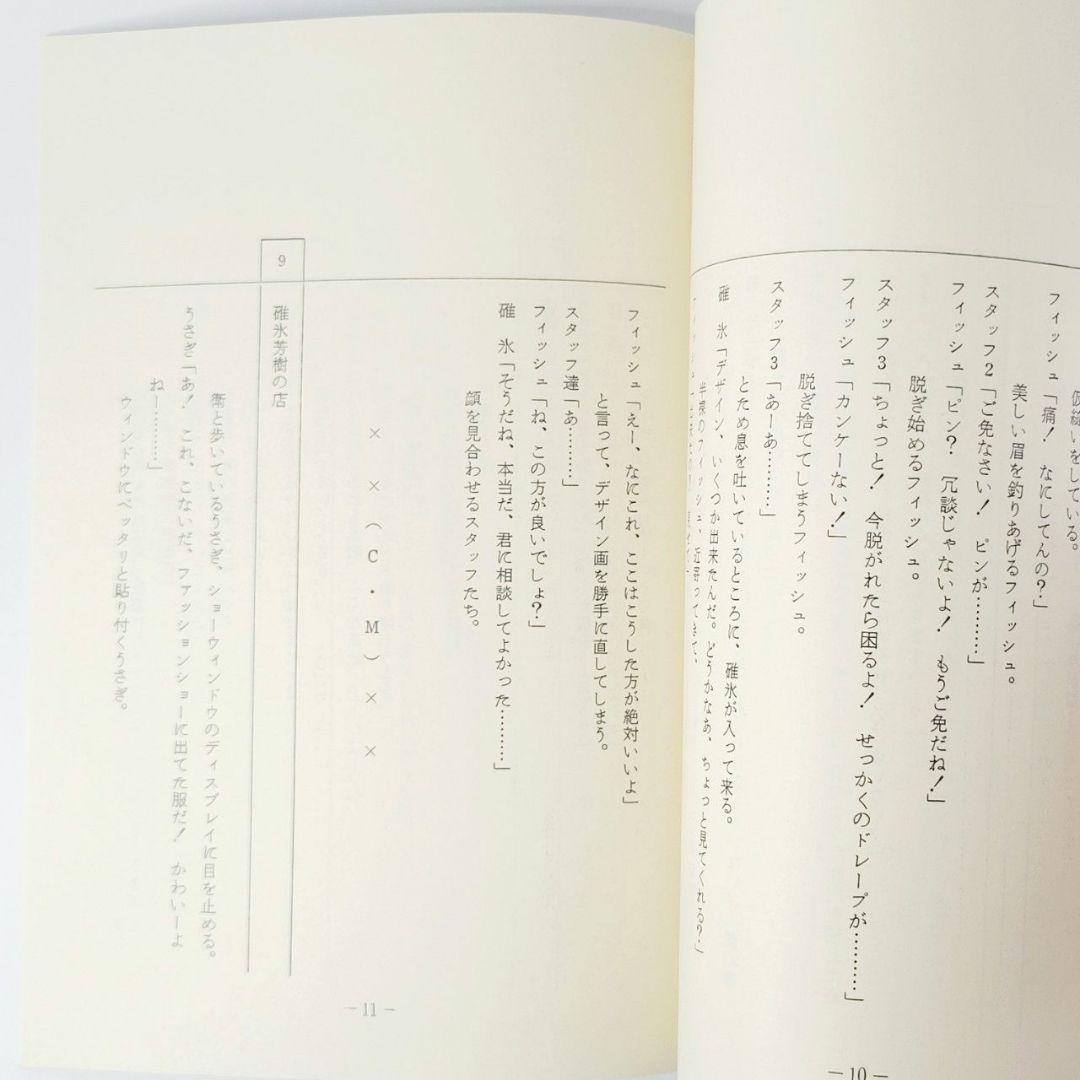 仮縫いをしている。
フィッシュ「痛！　なにしてんの？」
美しい眉を釣りあげるフィッシュ。
スタッフ２「ご免なさい！　ピンが………」
フィッシュ「ピン？　冗談じゃないよ！　もうご免だね！」
脱ぎ始めるフィッシュ。
スタッフ３「ちょっと！　今脱がれたら困るよ！　せっかくのドレープが………」
フィッシュ「カンケーない！」
脱ぎ捨ててしまうフィッシュ。
スタッフ３「あーあ………」
とため息を吐いているところに、碓氷が入って来る。
碓　氷「デザイン、いくつか出来たんだ。どうかなあ、ちょっと見てくれる？」
半裸のフィッシュ、近寄ってきて、
フィッシュ「
－10－
フィッシュ「えー、なにこれ、ここはこうした方が絶対いいよ」
と言って、デザイン画を勝手に直してしまう。
スタッフ達「あ………」
フィッシュ「ね、この方が良いでしょ？」
碓　氷「そうだね、本当だ、君に相談してよかった………」
顔を見合わせるスタッフたち。
×　×（Ｃ・Ｍ）×　×
9　碓氷芳樹の店
衛と歩いているうさぎ、ショーウィンドウのディスプレイに目を止める。
うさぎ「あ！　これ、こないだ、ファッションショーに出てた服だ！　かわいーよ
ねー………」
ウィンドウにベッタリと貼り付くうさぎ。
－11－